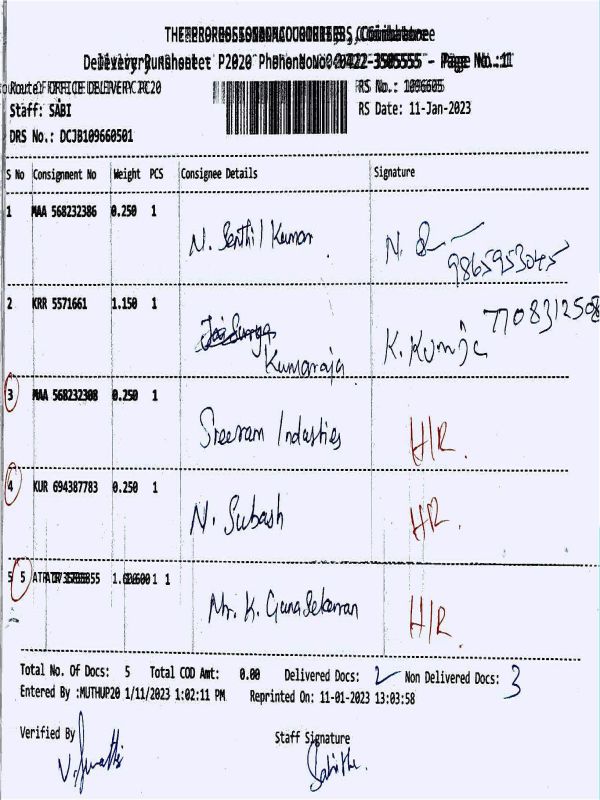 THE PROFESSIONAL COURIERS, Coimbatore
Delivery Runsheet P2020 Phone No: 0422-3505555 - Page No.:1
Route: OFFICE DELIVERY PC20 RS No.: 1096605
Staff: SABI RS Date: 11-Jan-2023
DRS No.: DCJB109660501
S No Consignment No Weight PCS Consignee Details Signature
1 MAA 568232386 0.250 1 N. Senthil Kumar N. 9865953045
2 KRR 5571661 1.150 1 Kumaraja K. 7708312508
3 MAA 568232308 0.250 1 Sreeram Industies H/R.
4 KUR 694387783 0.250 1 N. Subash H/R.
5 1 Mr. K. Gunasekaran H/R.
Total No. Of Docs: 5 Total COD Amt: 0.00 Delivered Docs: 2 Non Delivered Docs: 3
Entered By :MUTHUP20 1/11/2023 1:02:11 PM Reprinted On: 11-01-2023 13:03:58
Verified By Staff Signature